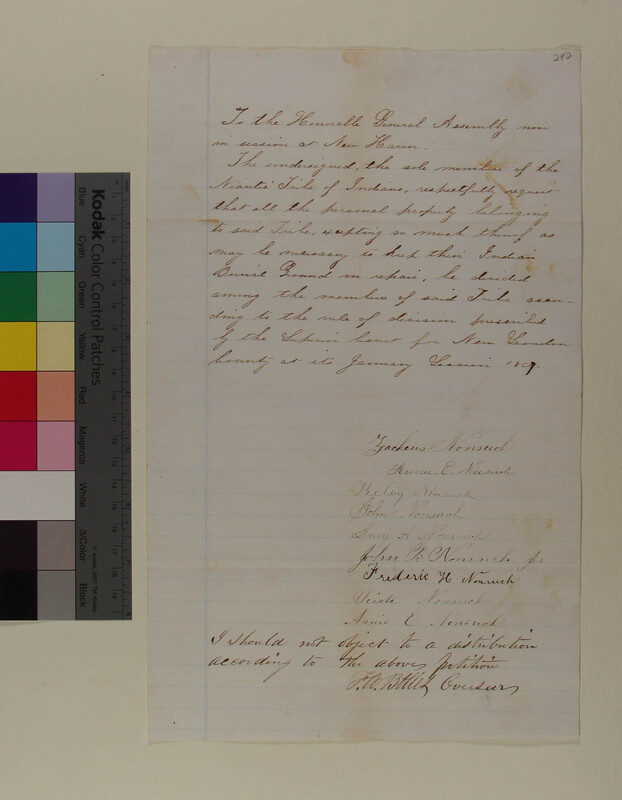 290
To the Honorable General Assembly now
in session at New Haven.
The undersigned, the sole members of the
Niantic Tribe of Indians, respectfully request
that all the personal property belonging
to said Tribe, excepting so much thereof as
may be necessary to keep their Indian
Burial Ground in repair, be divided
among the members of said Tribe accor-
ding to the rule of division prescribed
by the Superior Court for New London
County at its January Session
Zacheus Nonsuch
E. Nonsuch
Nonsuch
John Nonsuch
Lucy A Nonsuch
John B Nonsuch Jr
Frederic H Nonsuch
Nonsuch
Annie E Nonsuch
I should not object to a distribution
according to the above petition
Overseer
Kodak Color Control Patches
Blue
Cyan
Green
Yellow
Red
Magenta
White
3/Color
Black